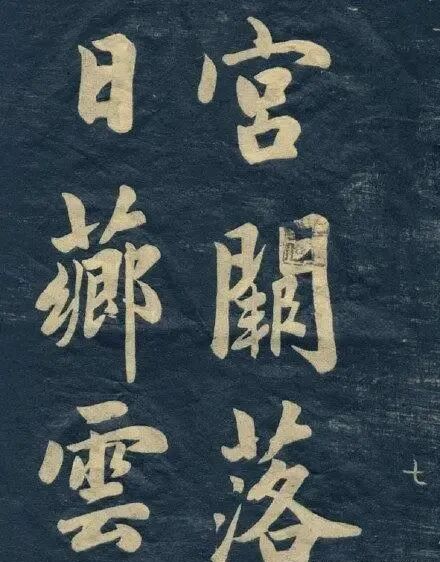 宮闕落
日薌雲
七